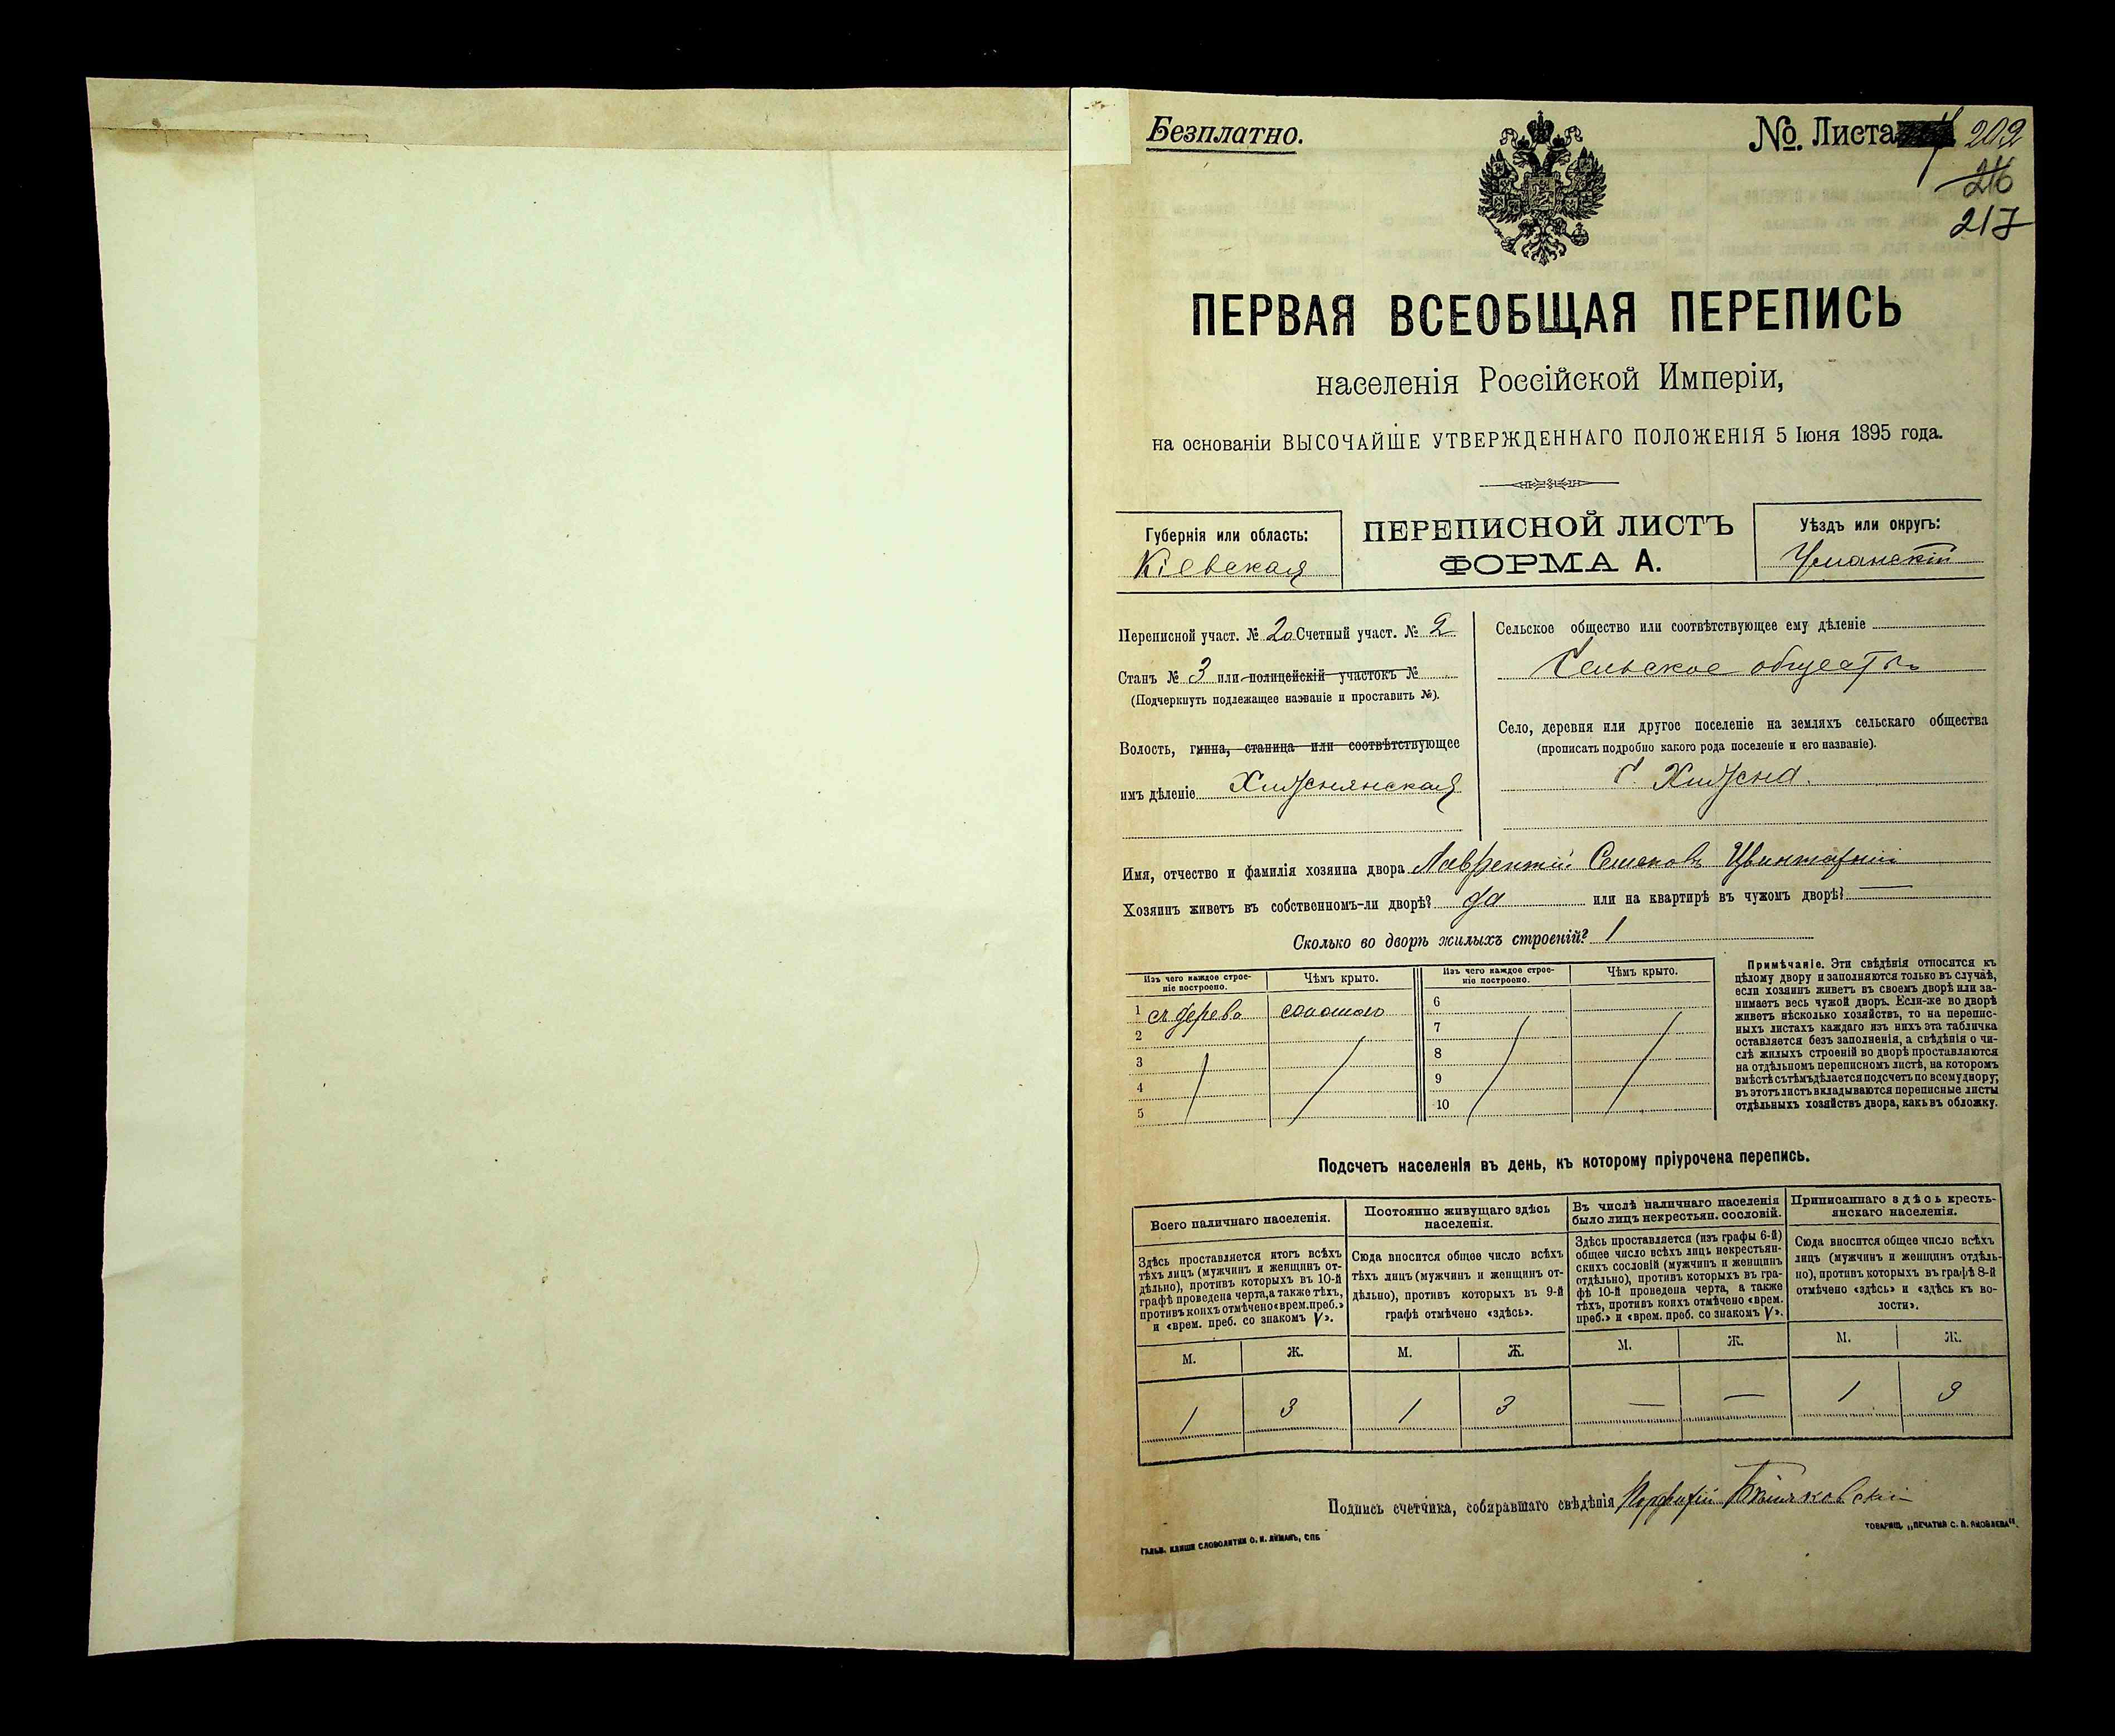 Безплатно.
№. Листа 202
216
217
ПЕРВАЯ ВСЕОБЩАЯ ПЕРЕПИСЬ
населенія Россійской Имперіи,
на основаніи ВЫСОЧАЙШЕ УТВЕРЖДЕННАГО ПОЛОЖЕНІЯ 5 Іюня 1895 года.
Губернія или область:
Кіевская
ПЕРЕПИСНОЙ ЛИСТЪ
ФОРМА А.
Уѣздъ или округъ:
Уманскій
Переписной участ. № 20 Счетный участ. № 2
Станъ № 3 или полицейскій участокъ №
(Подчеркнуть подлежащее названіе и проставить №).
Волость, гмина, станица или соотвѣтствующее
имъ дѣленіе Хижнянская
Сельское общество или соотвѣтствующее ему дѣленіе
Сельское общество
Село, деревня или другое поселеніе на земляхъ сельскаго общества
(прописать подробно какого рода поселеніе и его названіе).
С. Хижна.
Имя, отчество и фамилія хозяина двора Лаврентій Семеновъ Цвинтарній
Хозяинъ живетъ въ собственномъ-ли дворѣ? да или на квартирѣ въ чужомъ дворѣ? —
Сколько во дворѣ жилыхъ строеній? 1
Изъ чего каждое строе-
ніе построено.
Чѣмъ крыто.
Изъ чего каждое строе-
ніе построено.
Чѣмъ крыто.
1 съ дерева соломою 6
2 7
3 8
4 9
5 10
Примѣчаніе. Эти свѣдѣнія относятся къ
цѣлому двору и заполняются только въ случаѣ,
если хозяинъ живетъ въ своемъ дворѣ или за-
нимаетъ весь чужой дворъ. Если-же во дворѣ
живетъ нѣсколько хозяйствъ, то на перепис-
ныхъ листахъ каждаго изъ нихъ эта табличка
оставляется безъ заполненія, а свѣдѣнія о чи-
слѣ жилыхъ строеній во дворѣ проставляются
на отдѣльномъ переписномъ листѣ, на которомъ
вмѣстѣ съ тѣмъ дѣлается подсчетъ по всему двору;
въ этотъ листъ вкладываются переписные листы
отдѣльныхъ хозяйствъ двора, какъ въ обложку.
Подсчетъ населенія въ день, къ которому пріурочена перепись.
Всего наличнаго населенія.
Здѣсь проставляется итогъ всѣхъ
тѣхъ лицъ (мужчинъ и женщинъ от-
дѣльно), противъ которыхъ въ 10-й
графѣ проведена черта, а также тѣхъ,
противъ коихъ отмѣчено «врем. преб.»
и «врем. преб. со знакомъ V».
Постоянно живущаго здѣсь
населенія.
Сюда вносится общее число всѣхъ
тѣхъ лицъ (мужчинъ и женщинъ от-
дѣльно), противъ которыхъ въ 9-й
графѣ отмѣчено «здѣсь».
Въ числѣ наличнаго населенія
было лицъ некрестьян. сословій.
Здѣсь проставляется (изъ графы 6-й)
общее число всѣхъ лицъ некрестьян-
скихъ сословій (мужчинъ и женщинъ
отдѣльно), противъ которыхъ въ гра-
фѣ 10-й проведена черта, а также
тѣхъ, противъ коихъ отмѣчено «врем.
преб.» и «врем. преб. со знакомъ V».
Приписаннаго здѣсь кресть-
янскаго населенія.
Сюда вносится общее число всѣхъ
лицъ (мужчинъ и женщинъ отдѣль-
но), противъ которыхъ въ графѣ 8-й
отмѣчено «здѣсь» и «здѣсь къ во-
лости».
М. Ж. М. Ж. М. Ж. М. Ж.
1 3 1 3 — — 1 3
Подпись счетчика, собиравшаго свѣдѣнія Порфирій
ГАЛЬВ. КЛИШЕ СЛОВОЛИТНИ О. И. ЛЕМАНЪ, СПБ
ТОВАРИЩ. „ПЕЧАТНЯ С. П. ЯКОВЛЕВА“.